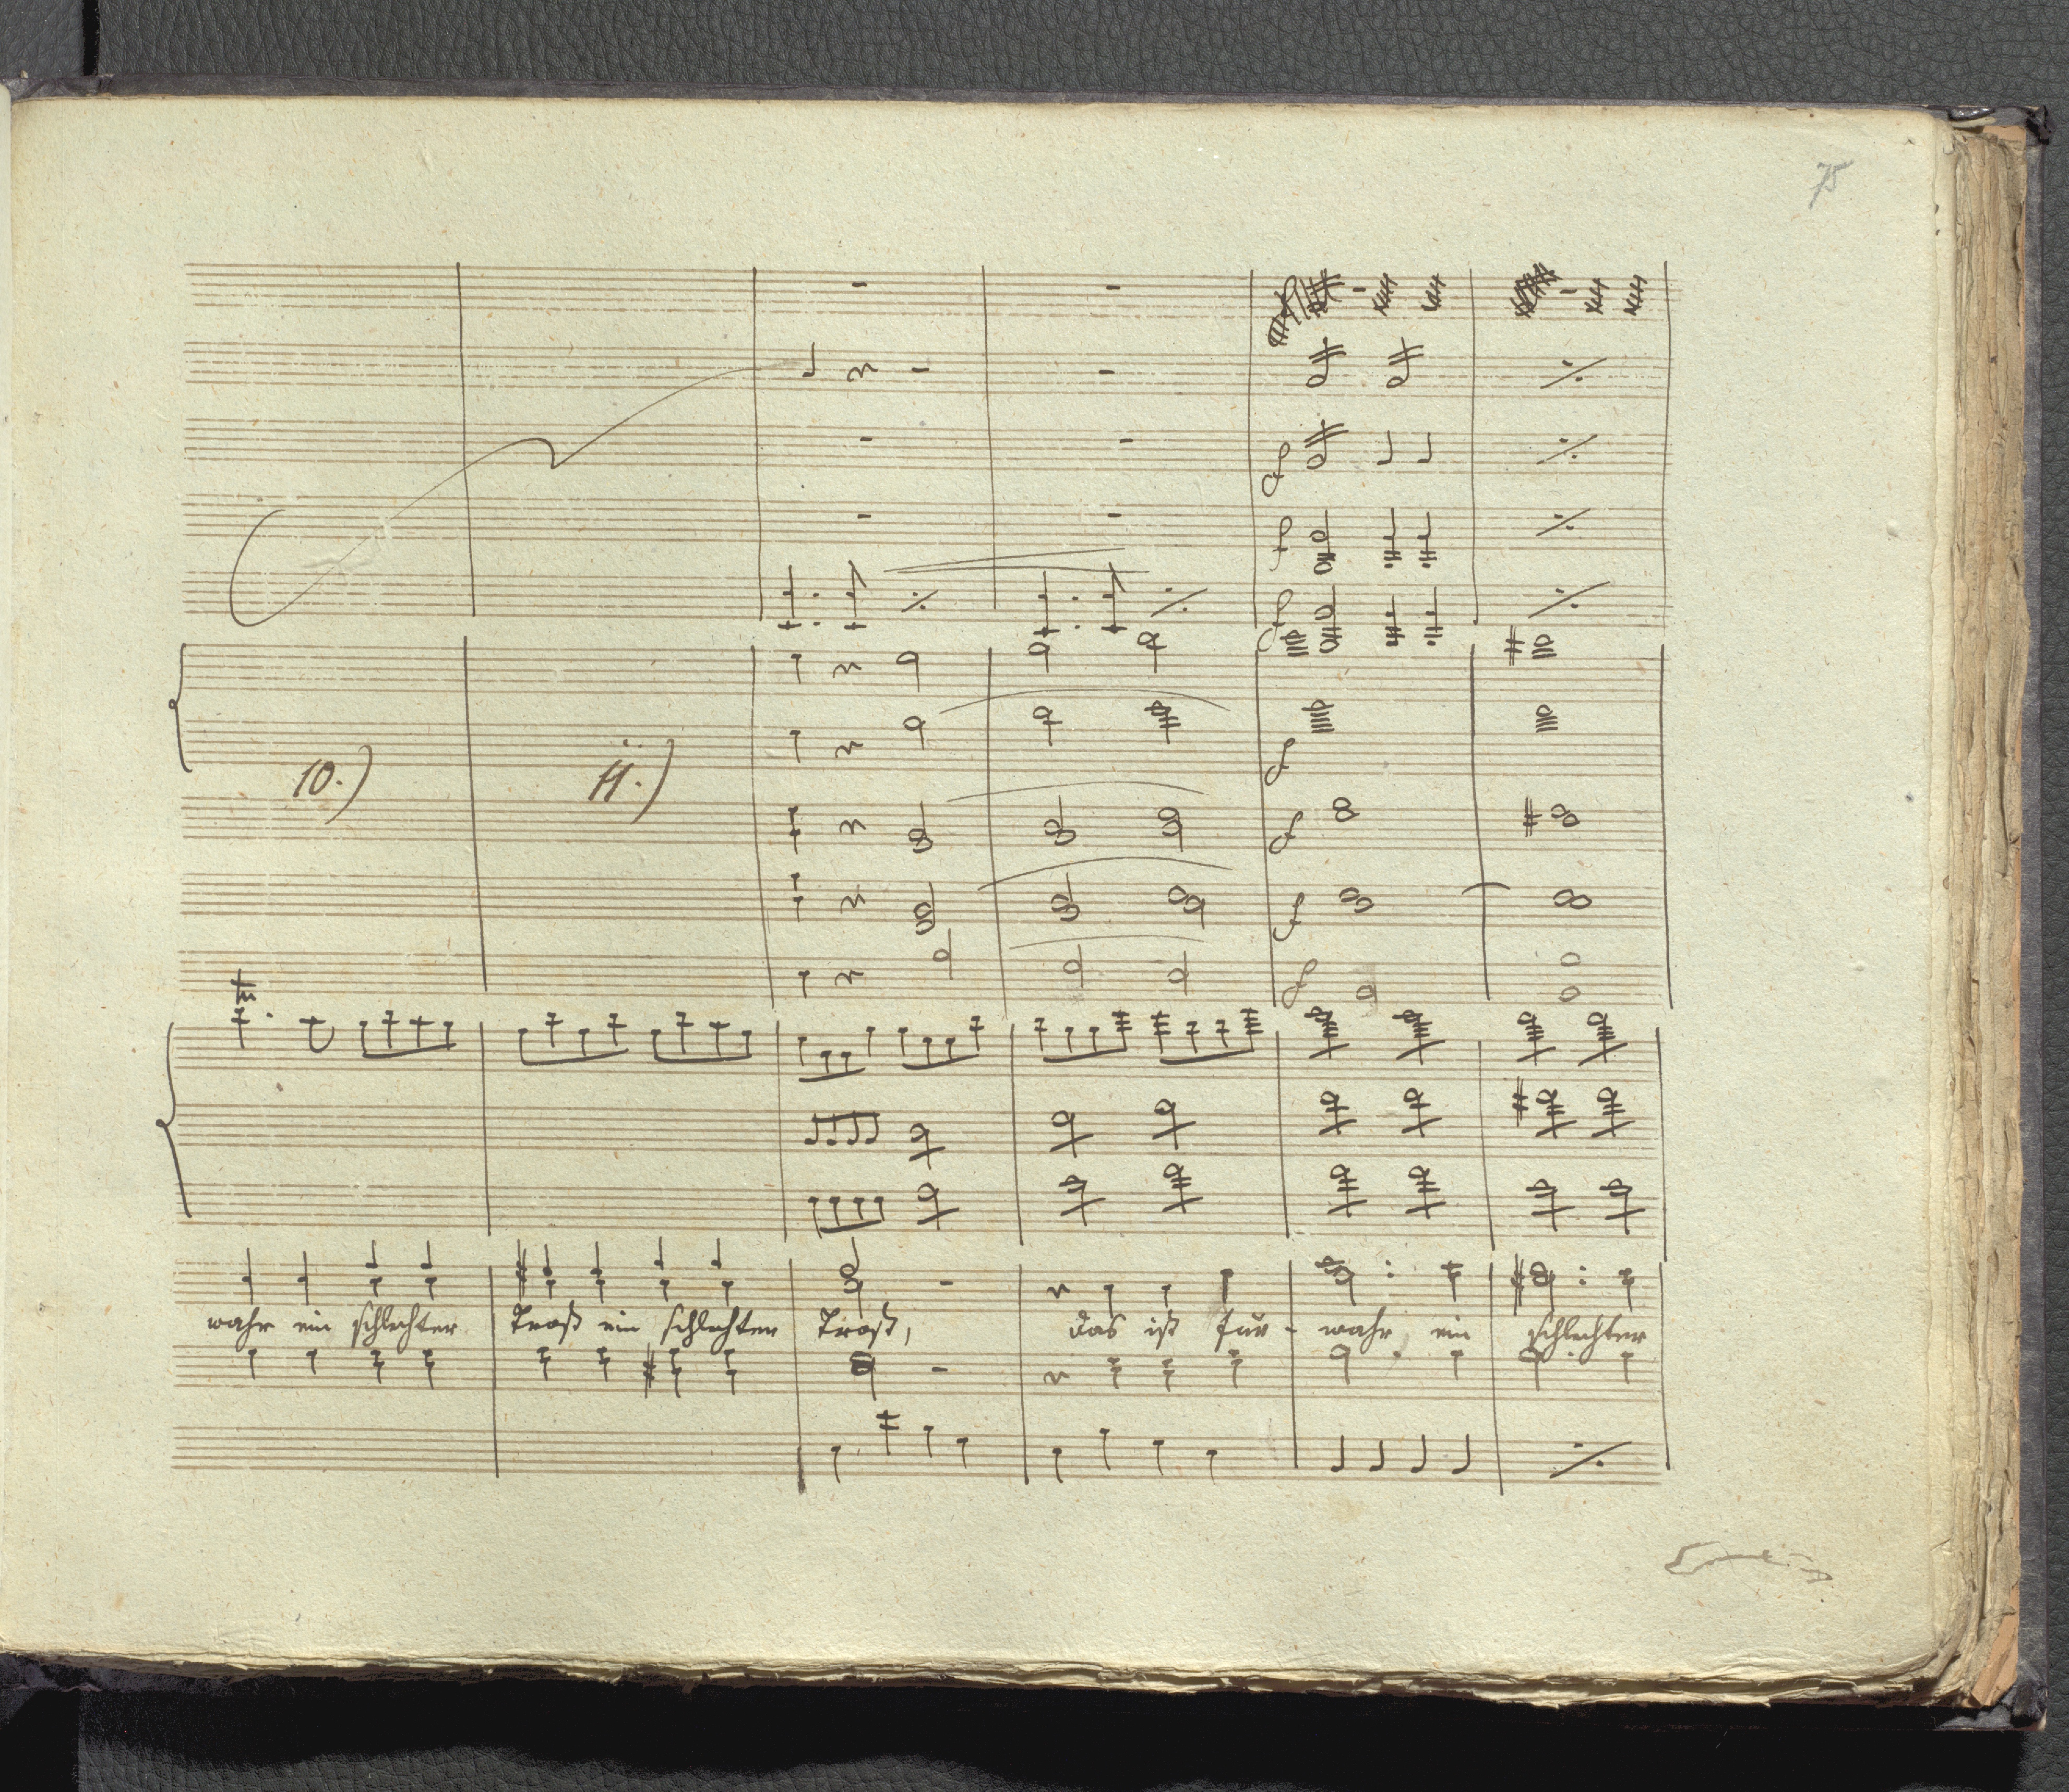 75
10.) 11.)
wahr ein schlechter Troß ein schlechter Troß, das ist für- wahr ein schlechter